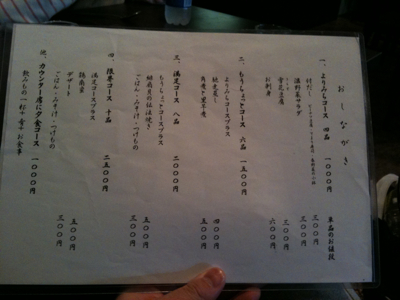 おしながき
単品のお値段
一、よりみちコース 四品 一〇〇〇円
付だし
三〇〇円
温野菜サラダ
三〇〇円
雪花豆腐
三〇〇円
お刺身
六〇〇円
二、もうしょっとコース 六品 一五〇〇円
よりみちコースプラス
地魚蒸し
四〇〇円
角煮と里芋煮
五〇〇円
三、満足コース 八品 二〇〇〇円
もうしょっとコースプラス
鮭南貝の伝法焼き
五〇〇円
ごはん・みそ汁・つけもの
三〇〇円
四、限界コース 十品 二五〇〇円
満足コースプラス
鶏南蛮
五〇〇円
デザート
三〇〇円
ごはん・みそ汁・つけもの
三〇〇円
他、カウンター席に夕食コース 一〇〇〇円
飲みもの一杯+肴+お食事